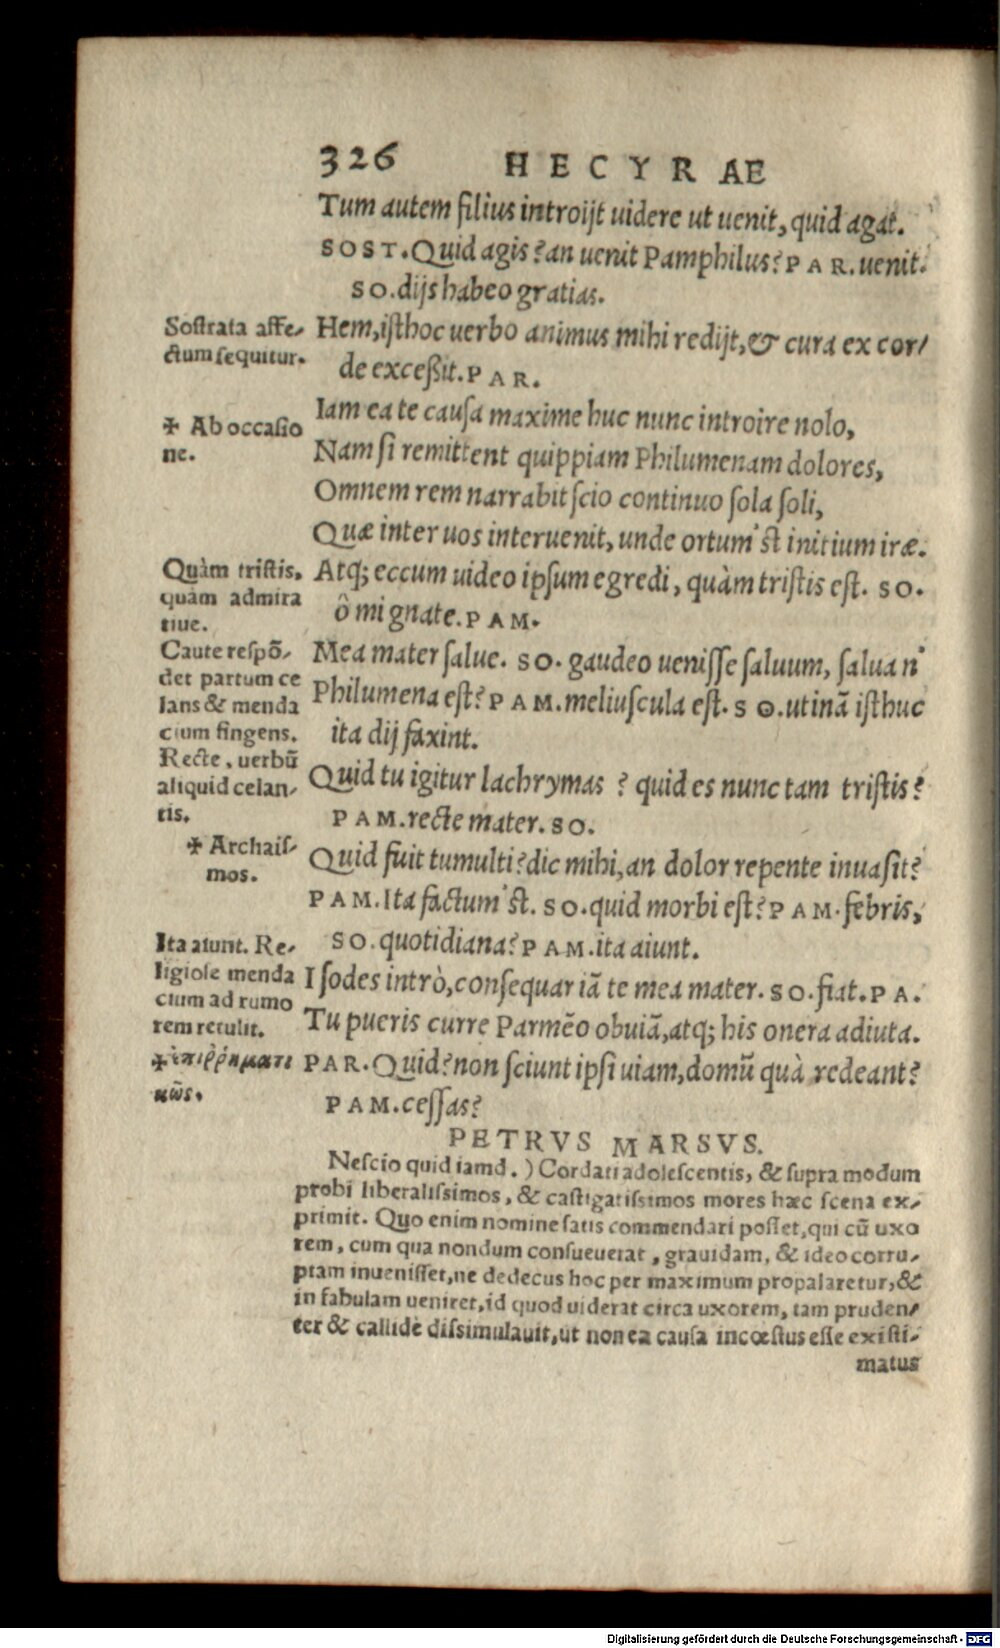 326 HECYRAE
Tum autem filius introijt uidere ut uenit, quid agat.
SOST. Quid agis? an uenit Pamphilus? PAR. uenit.
SO. dijs habeo gratias.
Sostrata affe-
ctum sequitur.
Hem, isthoc uerbo animus mihi redijt, & cura ex cor-
de exceßit. PAR.
✠ Ab occasio
ne.
Iam ea te causa maxime huc nunc introire nolo,
Nam si remittent quippiam Philumenam dolores,
Omnem rem narrabit scio continuo sola soli,
Quæ inter uos interuenit, unde ortum'st initium iræ.
Quàm tristis,
quàm admira
tiue.
Atq; eccum uideo ipsum egredi, quàm tristis est. SO.
ô mi gnate. PAM.
Caute respõ-
det partum ce
lans & menda
cium fingens.
Mea mater salue. SO. gaudeo uenisse saluum, salua n'
Philumena est? PAM. meliuscula est. SO. utinã isthuc
ita dij faxint.
Recte, uerbũ
aliquid celan-
tis.
Quid tu igitur lachrymas? quid es nunc tam tristis?
PAM. recte mater. SO.
✠ Archais-
mos.
Quid fuit tumulti? dic mihi, an dolor repente inuasit?
PAM. Ita factum'st. SO. quid morbi est? PAM. febris,
SO. quotidiana? PAM. ita aiunt.
Ita aiunt. Re-
ligiose menda
cium ad rumo
rem retulit.
I sodes intrò, consequar iã te mea mater. SO. fiat. PA.
Tu pueris curre Parmẽo obuiã, atq; his onera adiuta.
✠ ἐπιῤῥηματι
κῶς.
PAR. Quid? non sciunt ipsi uiam, domũ quà redeant?
PAM. cessas?
PETRVS MARSVS.
Nescio quid iamd.) Cordati adolescentis, & supra modum
probi liberalissimos, & castigatissimos mores hæc scena ex-
primit. Quo enim nomine satis commendari posset, qui cũ uxo
rem, cum qua nondum consueuerat, grauidam, & ideo corru-
ptam inuenisset, ne dedecus hoc per maximum propalaretur, &
in fabulam ueniret, id quod uiderat circa uxorem, tam pruden-
ter & callidè dissimulauit, ut non ea causa incœstus esse existi-
matus
Digitalisierung gefördert durch die Deutsche Forschungsgemeinschaft - DFG